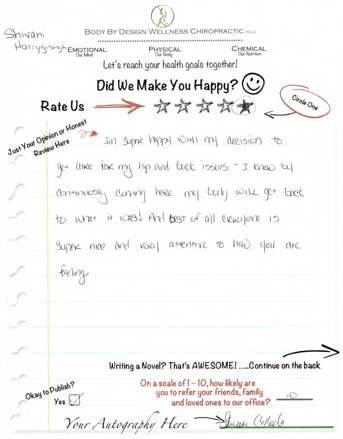 Shivani
BODY BY DESIGN WELLNESS CHIROPRACTIC PLLC
EMOTIONAL PHYSICAL CHEMICAL
Our Mind Our Body Our Nutrition
Let's reach your health goals together!
Did We Make You Happy?
Rate Us
Circle One
Just Your Opinion or Honest
Review Here
Im super happy with my decision to
get care for my hip and back issues - I know by
continuously coming here my body will get back
to what it was! And best of all everyone is
super nice and very attentive to how you are
feeling
Writing a Novel? That's AWESOME! .....Continue on the back
Okay to Publish?
Yes
On a scale of 1 - 10, how likely are
you to refer your friends, family
and loved ones to our office? 10
Your Autography Here